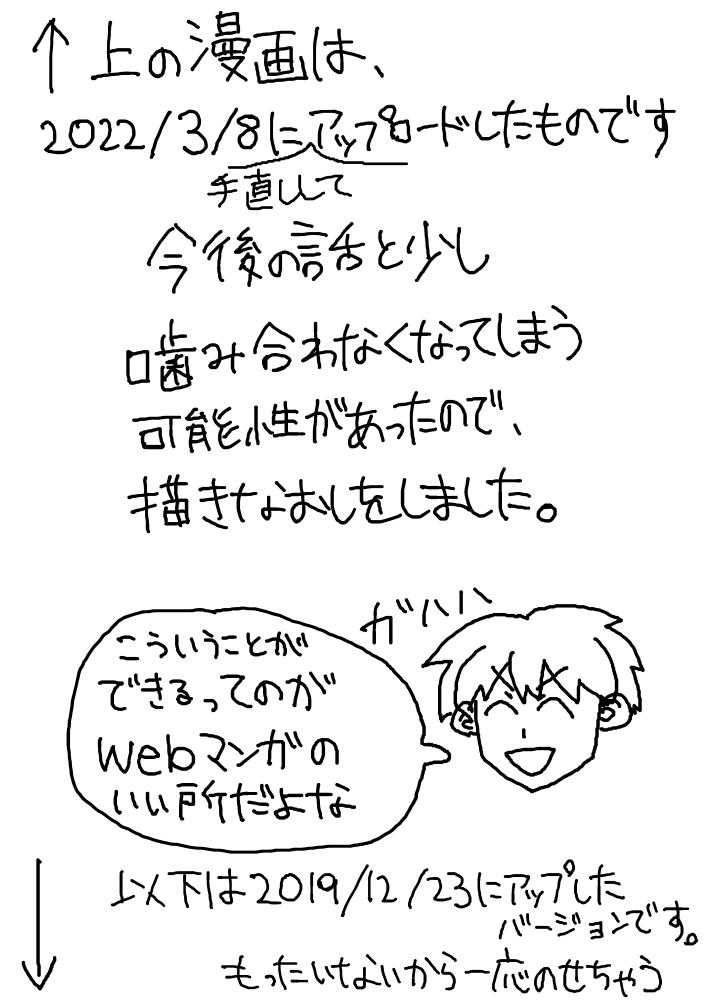 ↑上の漫画は、
2022/3/8にアップロードしたものです
手直しして
今後の話と少し
噛み合わなくなってしまう
可能性があったので、
描きなおしをしました。
ガハハ
こういうことが
できるってのが
webマンガの
いい所だよな
↓以下は2019/12/23にアップした
バージョンです。
もったいないから一応のせちゃう